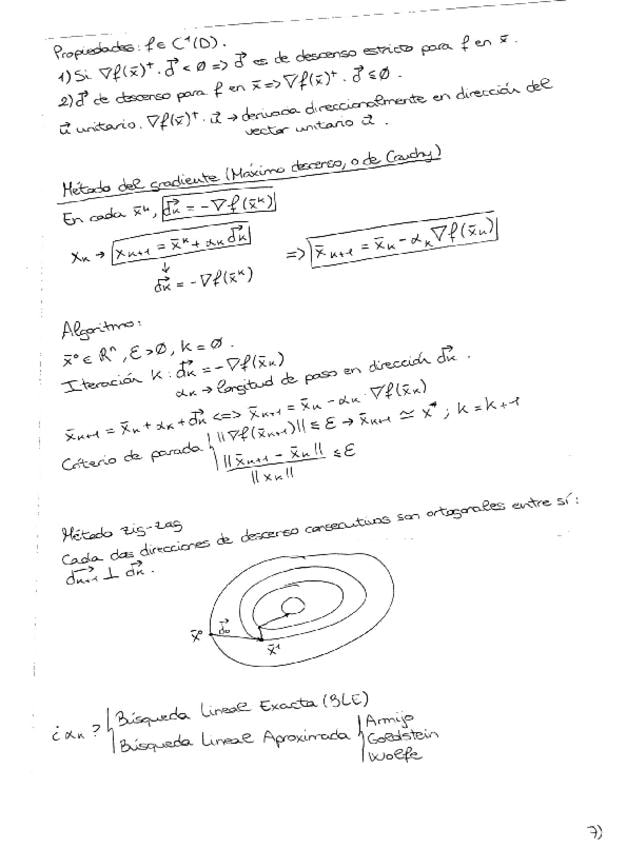 Propiedades: f ∈ C¹(D).
1) Si ∇f(x̄)ᵗ · d⃗ < 0 => d⃗ es de descenso estricto para f en x̄.
2) d⃗ de descenso para f en x̄ => ∇f(x̄)ᵗ · d⃗ ≤ 0.
u⃗ unitario. ∇f(x̄)ᵗ · u⃗ → derivada direccionalmente en dirección del
vector unitario u⃗.
Método del gradiente (Máximo descenso, o de Cauchy)
En cada x̄ᵏ, d⃗ₖ = -∇f(x̄ᵏ)
Xₖ → Xₖ₊₁ = x̄ᵏ + αₖ d⃗ₖ => x̄ₖ₊₁ = x̄ₖ - αₖ ∇f(x̄ₖ)
↓
d⃗ₖ = -∇f(x̄ᵏ)
Algoritmo:
x̄⁰ ∈ ℝⁿ, ε > 0, k = 0.
Iteración k: d⃗ₖ = -∇f(x̄ₖ)
αₖ → longitud de paso en dirección d⃗ₖ.
x̄ₖ₊₁ = x̄ₖ + αₖ + d⃗ₖ <=> x̄ₖ₊₁ = x̄ₖ - αₖ · ∇f(x̄ₖ)
Criterio de parada | ||∇f(x̄ₖ₊₁)|| ≤ ε → x̄ₖ₊₁ ≃ x* ; k = k+1
||x̄ₖ₊₁ - x̄ₖ|| / ||xₖ|| ≤ ε
Método zig-zag
Cada dos direcciones de descenso consecutivas son ortogonales entre sí:
d⃗ₖ₊₁ ⊥ d⃗ₖ.
x̄⁰ d⃗₀
x̄¹
¿αₖ? | Búsqueda Lineal Exacta (BLE)
| Búsqueda Lineal Aproximada | Armijo
Goldstein
Wolfe
7)